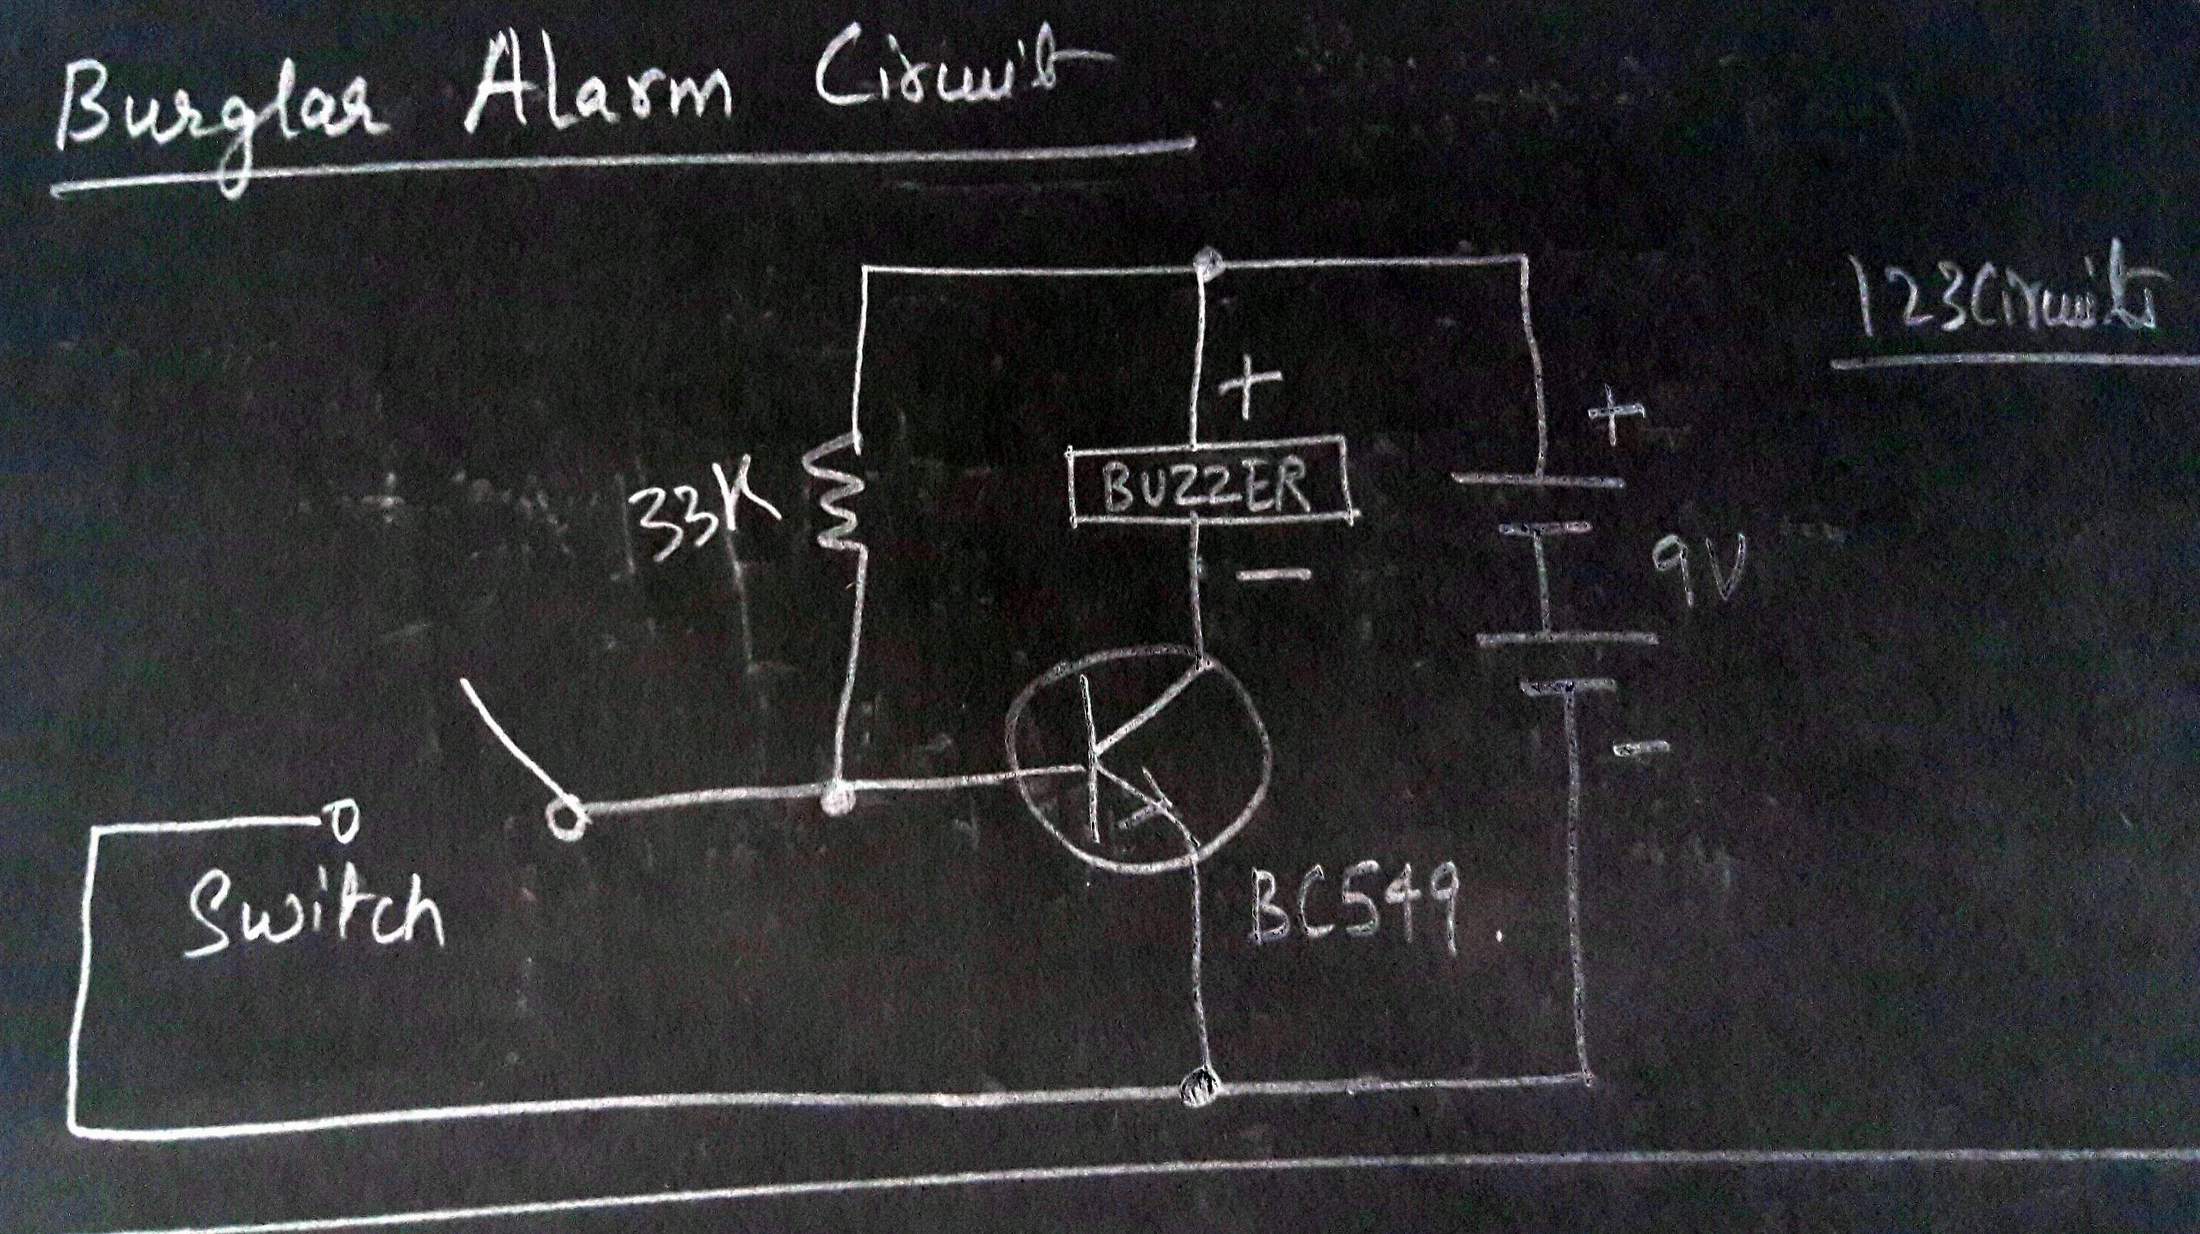 Burglar Alarm Circuit
123Circuits
+
+
33K
BUZZER
9V
−
−
Switch
BC549.